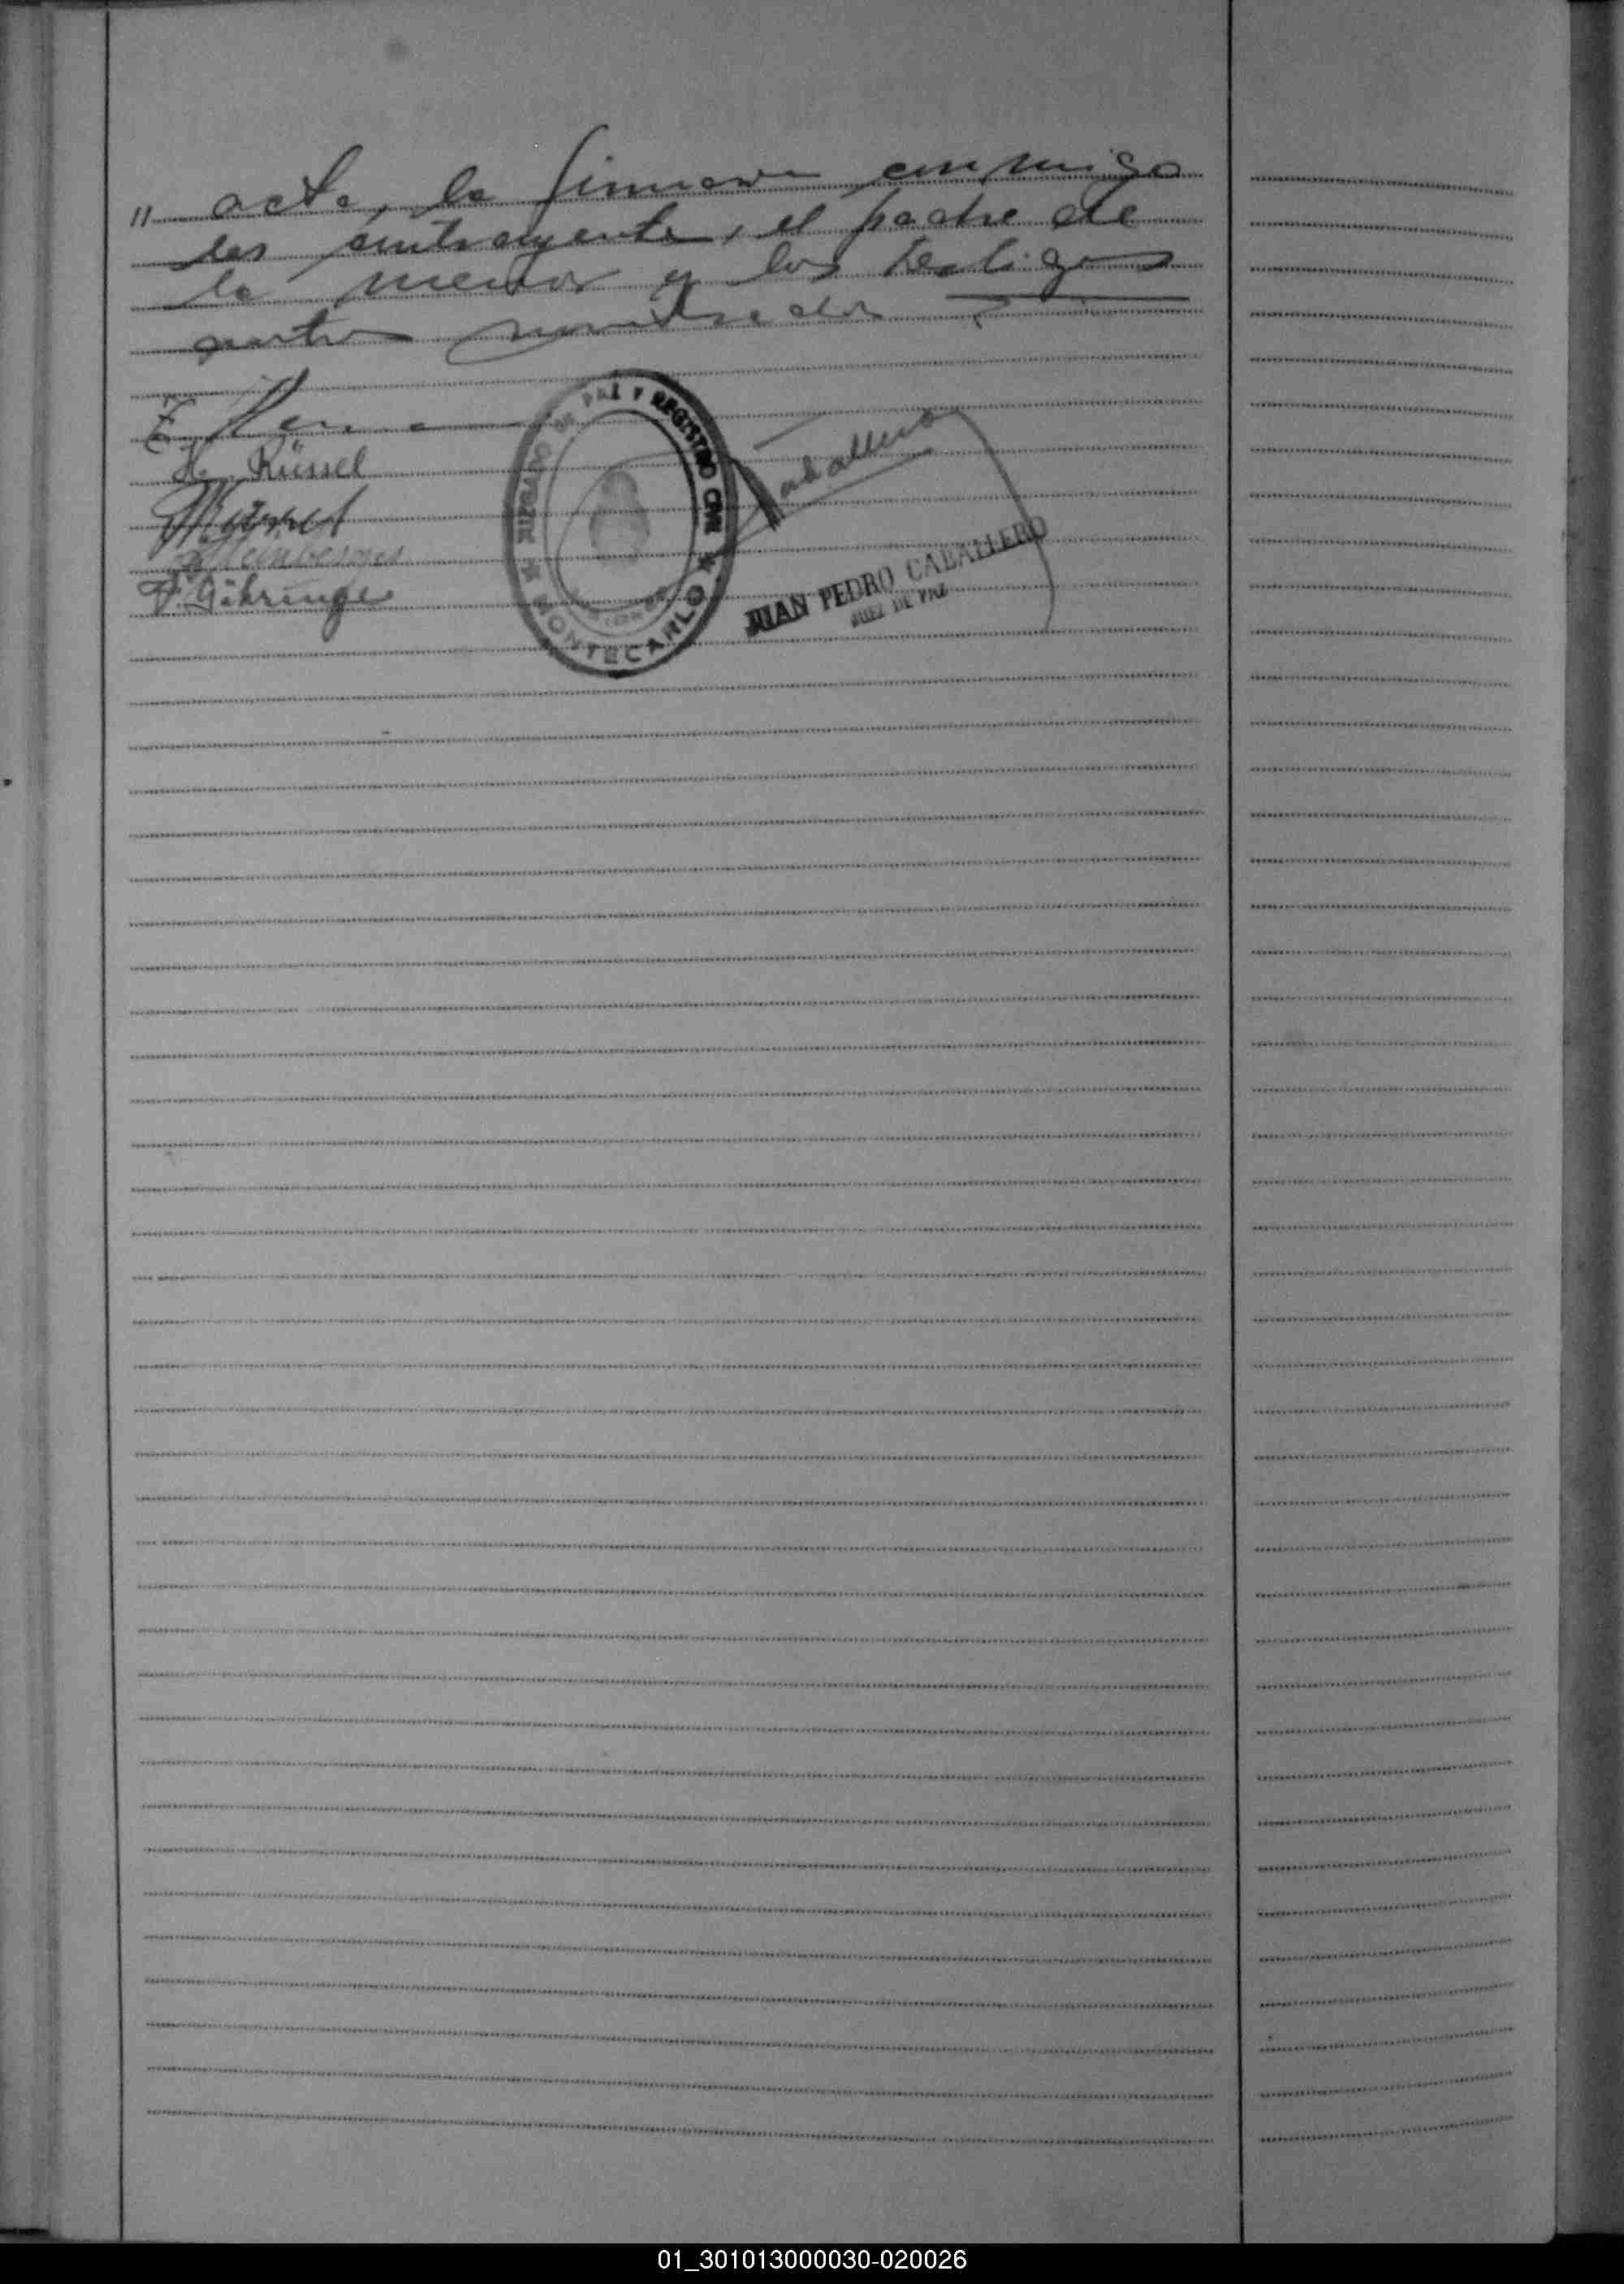 " acta, la firmaron conmigo
los contrayentes, el padre de
la menor y los testigos
antes nombrados
H. Rüssel
F. Göhringe
Caballero
JUZGADO DE PAZ Y REGISTRO CIVIL
MONTECARLO
JUAN PEDRO CABALLERO
JUEZ DE PAZ
01_301013000030-020026